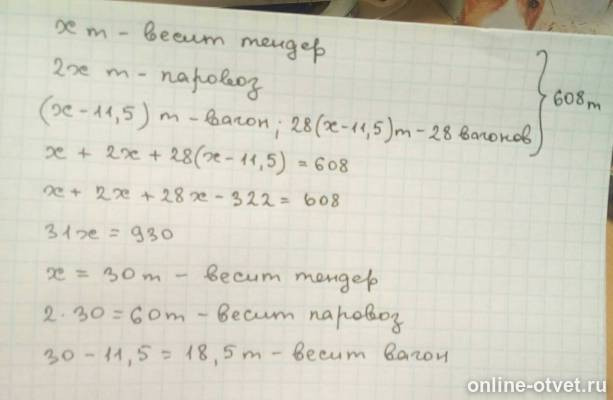 x т - весит тендер
2x т - паровоз
(x - 11,5) т - вагон; 28(x - 11,5) т - 28 вагонов } 608 т
x + 2x + 28(x - 11,5) = 608
x + 2x + 28x - 322 = 608
31x = 930
x = 30 т - весит тендер
2 · 30 = 60 т - весит паровоз
30 - 11,5 = 18,5 т - весит вагон
online-otvet.ru